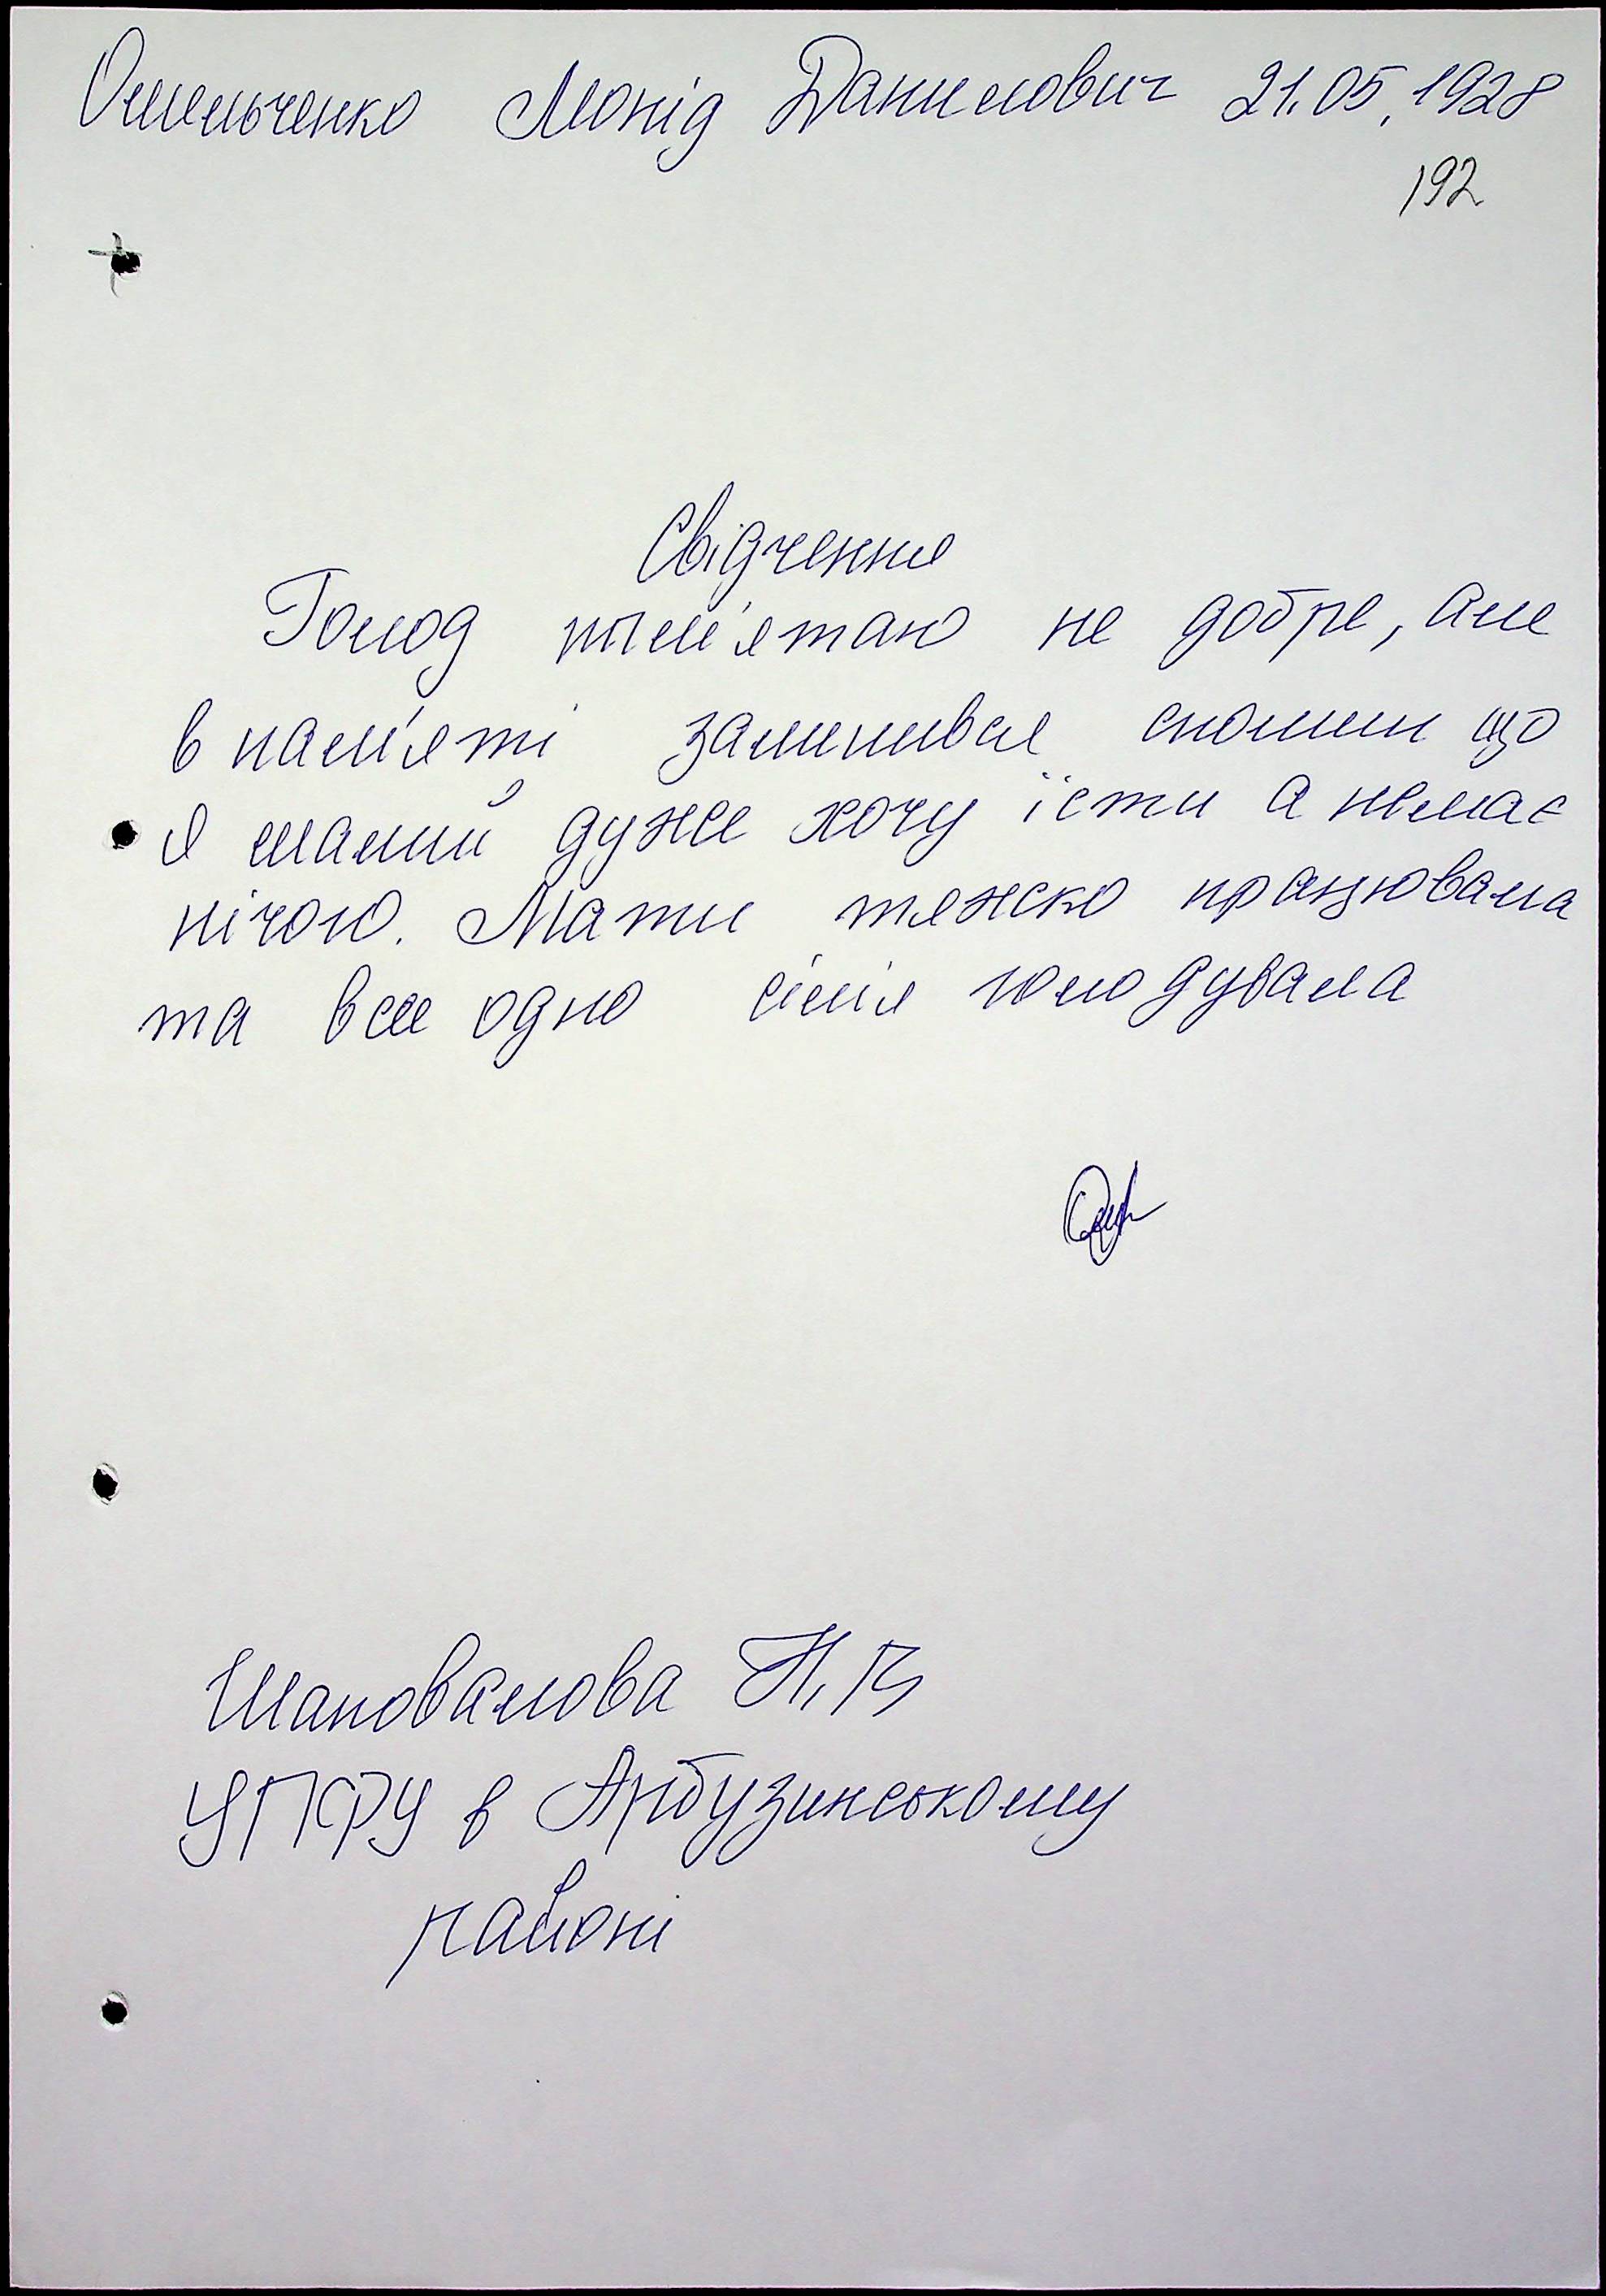 Омельченко Леонід Данилович 21.05.1928
192
Свідчення
Голод пам'ятаю не добре, але
в пам'яті залишився спомин що
я малий дуже хочу їсти а немає
нічого. Мати тяжко працювала
та все одно сім'я голодувала
Шаповалова Н.В
УПФУ в Арбузинському
районі